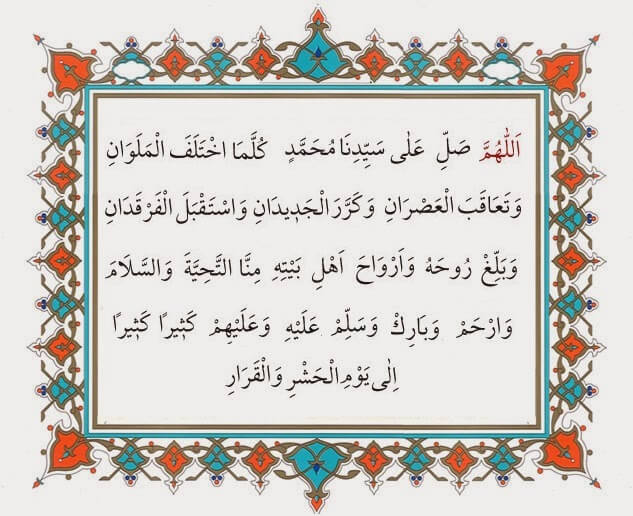 اَللّٰهُمَّ صَلِّ عَلٰى سَيِّدِنَا مُحَمَّدٍ كُلَّمَا اخْتَلَفَ الْمَلَوَانِ
وَتَعَاقَبَ الْعَصْرَانِ وَكَرَّرَ الْجَدٖيدَانِ وَاسْتَقْبَلَ الْفَرْقَدَانِ
وَبَلِّغْ رُوحَهُ وَاَرْوَاحَ اَهْلِ بَيْتِهِ مِنَّا التَّحِيَّةَ وَالسَّلَامَ
وَارْحَمْ وَبَارِكْ وَسَلِّمْ عَلَيْهِ وَعَلَيْهِمْ كَثٖيرًا كَثٖيرًا
اِلٰى يَوْمِ الْحَشْرِ وَالْقَرَارِ